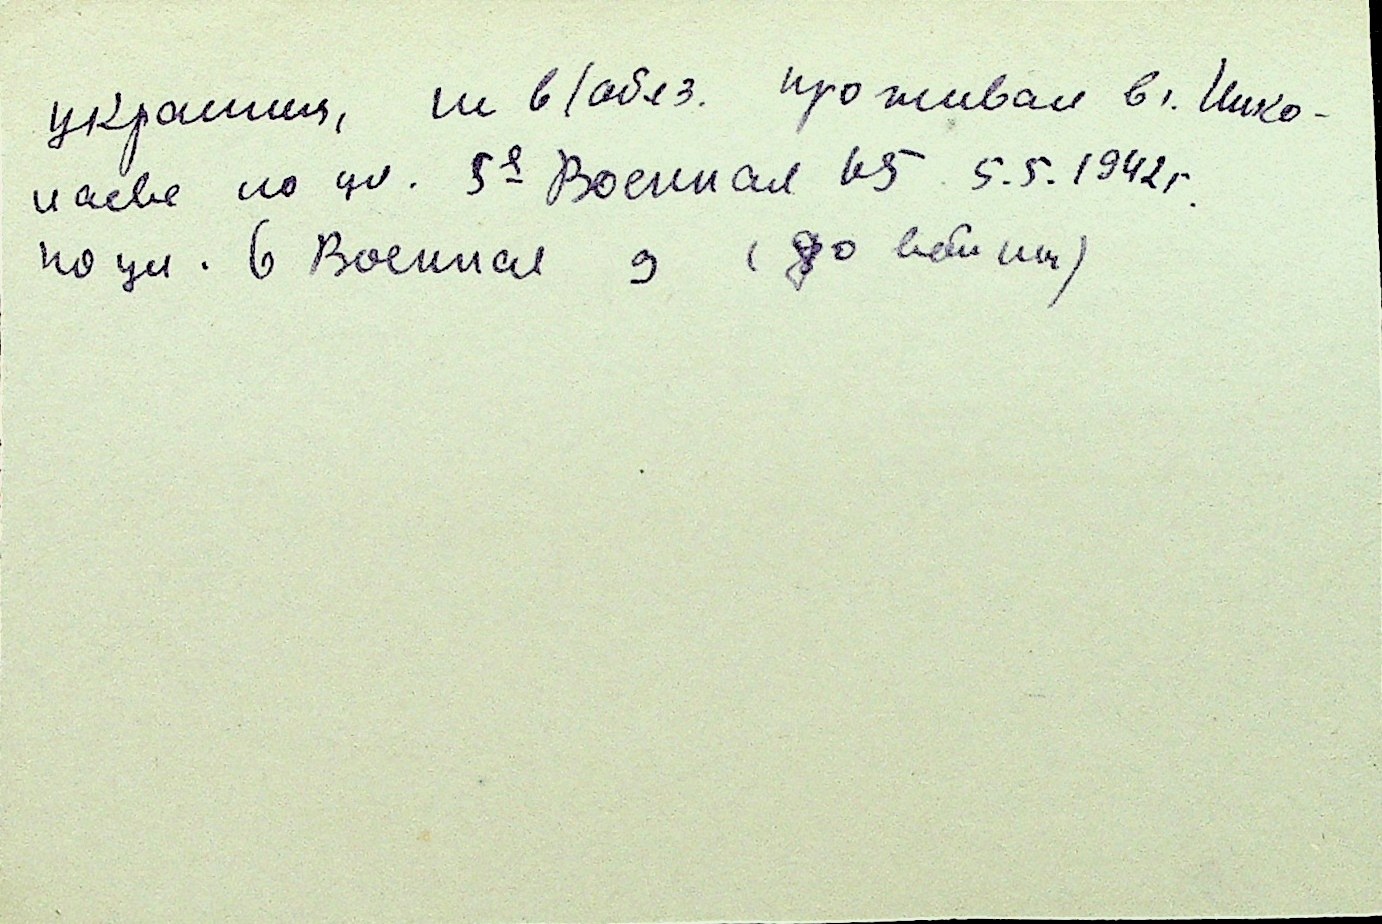 украинец, не в/обяз. проживал в г. Нико-
лаеве по ул. 5я Военная 45 5.5.1942г.
по ул. 6 Военная 9 (до войны)